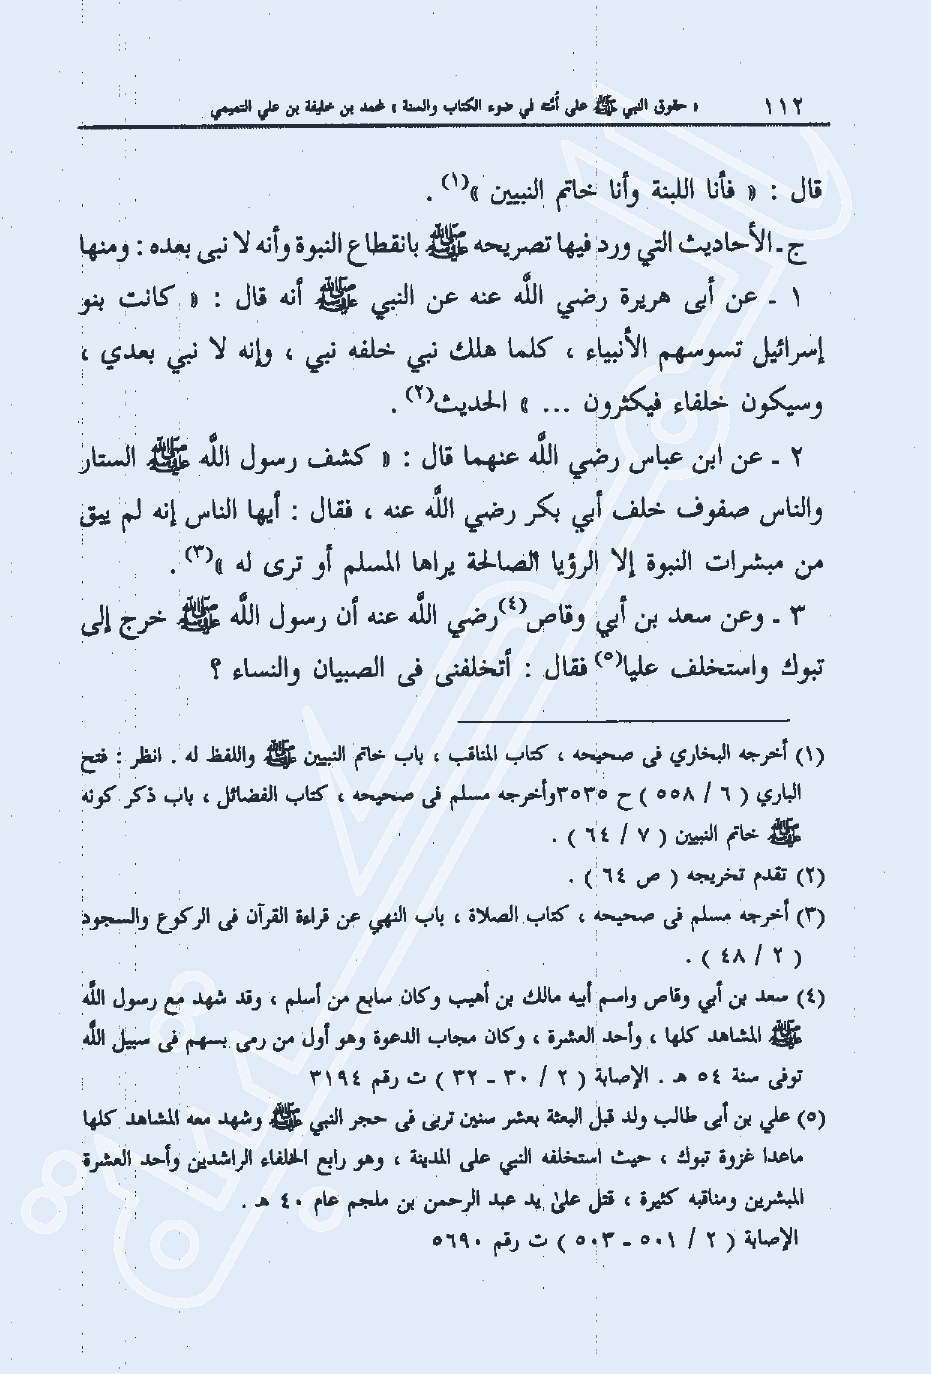 ١١٢ « حقوق النبي ﷺ على أُمّته في ضوء الكتاب والسنة » لمحمد بن خليفة بن علي التميمي
قال : « فأنا اللبنة وأنا خاتم النبيين »(١) .
ج ـ الأحاديث التي ورد فيها تصريحه ﷺ بانقطاع النبوة وأنه لا نبى بعده : ومنها
١ ـ عن أبى هريرة رضي اللَّه عنه عن النبي ﷺ أنه قال : « كانت بنو
إسرائيل تسوسهم الأنبياء ، كلما هلك نبي خلفه نبي ، وإنه لا نبي بعدي ،
وسيكون خلفاء فيكثرون ... » الحديث(٢) .
٢ ـ عن ابن عباس رضي اللَّه عنهما قال : « كشف رسول اللَّه ﷺ الستار
والناس صفوف خلف أبي بكر رضي اللَّه عنه ، فقال : أيها الناس إنه لم يبق
من مبشرات النبوة إلا الرؤيا الصالحة يراها المسلم أو ترى له »(٣) .
٣ ـ وعن سعد بن أبي وقاص(٤) رضي اللَّه عنه أن رسول اللَّه ﷺ خرج إلى
تبوك واستخلف عليا(٥) فقال : أتخلفنى فى الصبيان والنساء ؟
(١) أخرجه البخاري فى صحيحه ، كتاب المناقب ، باب خاتم النبيين ﷺ واللفظ له . انظر : فتح
الباري ( ٦ / ٥٥٨ ) ح ٣٥٣٥ وأخرجه مسلم فى صحيحه ، كتاب الفضائل ، باب ذكر كونه
ﷺ خاتم النبيين ( ٧ / ٦٤ ) .
(٢) تقدم تخريجه ( ص ٦٤ ) .
(٣) أخرجه مسلم فى صحيحه ، كتاب الصلاة ، باب النهي عن قراءة القرآن فى الركوع والسجود
( ٢ / ٤٨ ) .
(٤) سعد بن أبي وقاص واسم أبيه مالك بن أهيب وكان سابع من أسلم ، وقد شهد مع رسول اللَّه
ﷺ المشاهد كلها ، وأحد العشرة ، وكان مجاب الدعوة وهو أول من رمى بسهم فى سبيل اللَّه
توفى سنة ٥٤ هـ . الإصابة ( ٢ / ٣٠ ـ ٣٢ ) ت رقم ٣١٩٤
(٥) علي بن أبى طالب ولد قبل البعثة بعشر سنين تربى فى حجر النبي ﷺ وشهد معه المشاهد كلها
ماعدا غزوة تبوك ، حيث استخلفه النبي على المدينة ، وهو رابع الخلفاء الراشدين وأحد العشرة
المبشرين ومناقبه كثيرة ، قتل على يد عبد الرحمن بن ملجم عام ٤٠ هـ .
الإصابة ( ٢ / ٥٠١ ـ ٥٠٣ ) ت رقم ٥٦٩٠